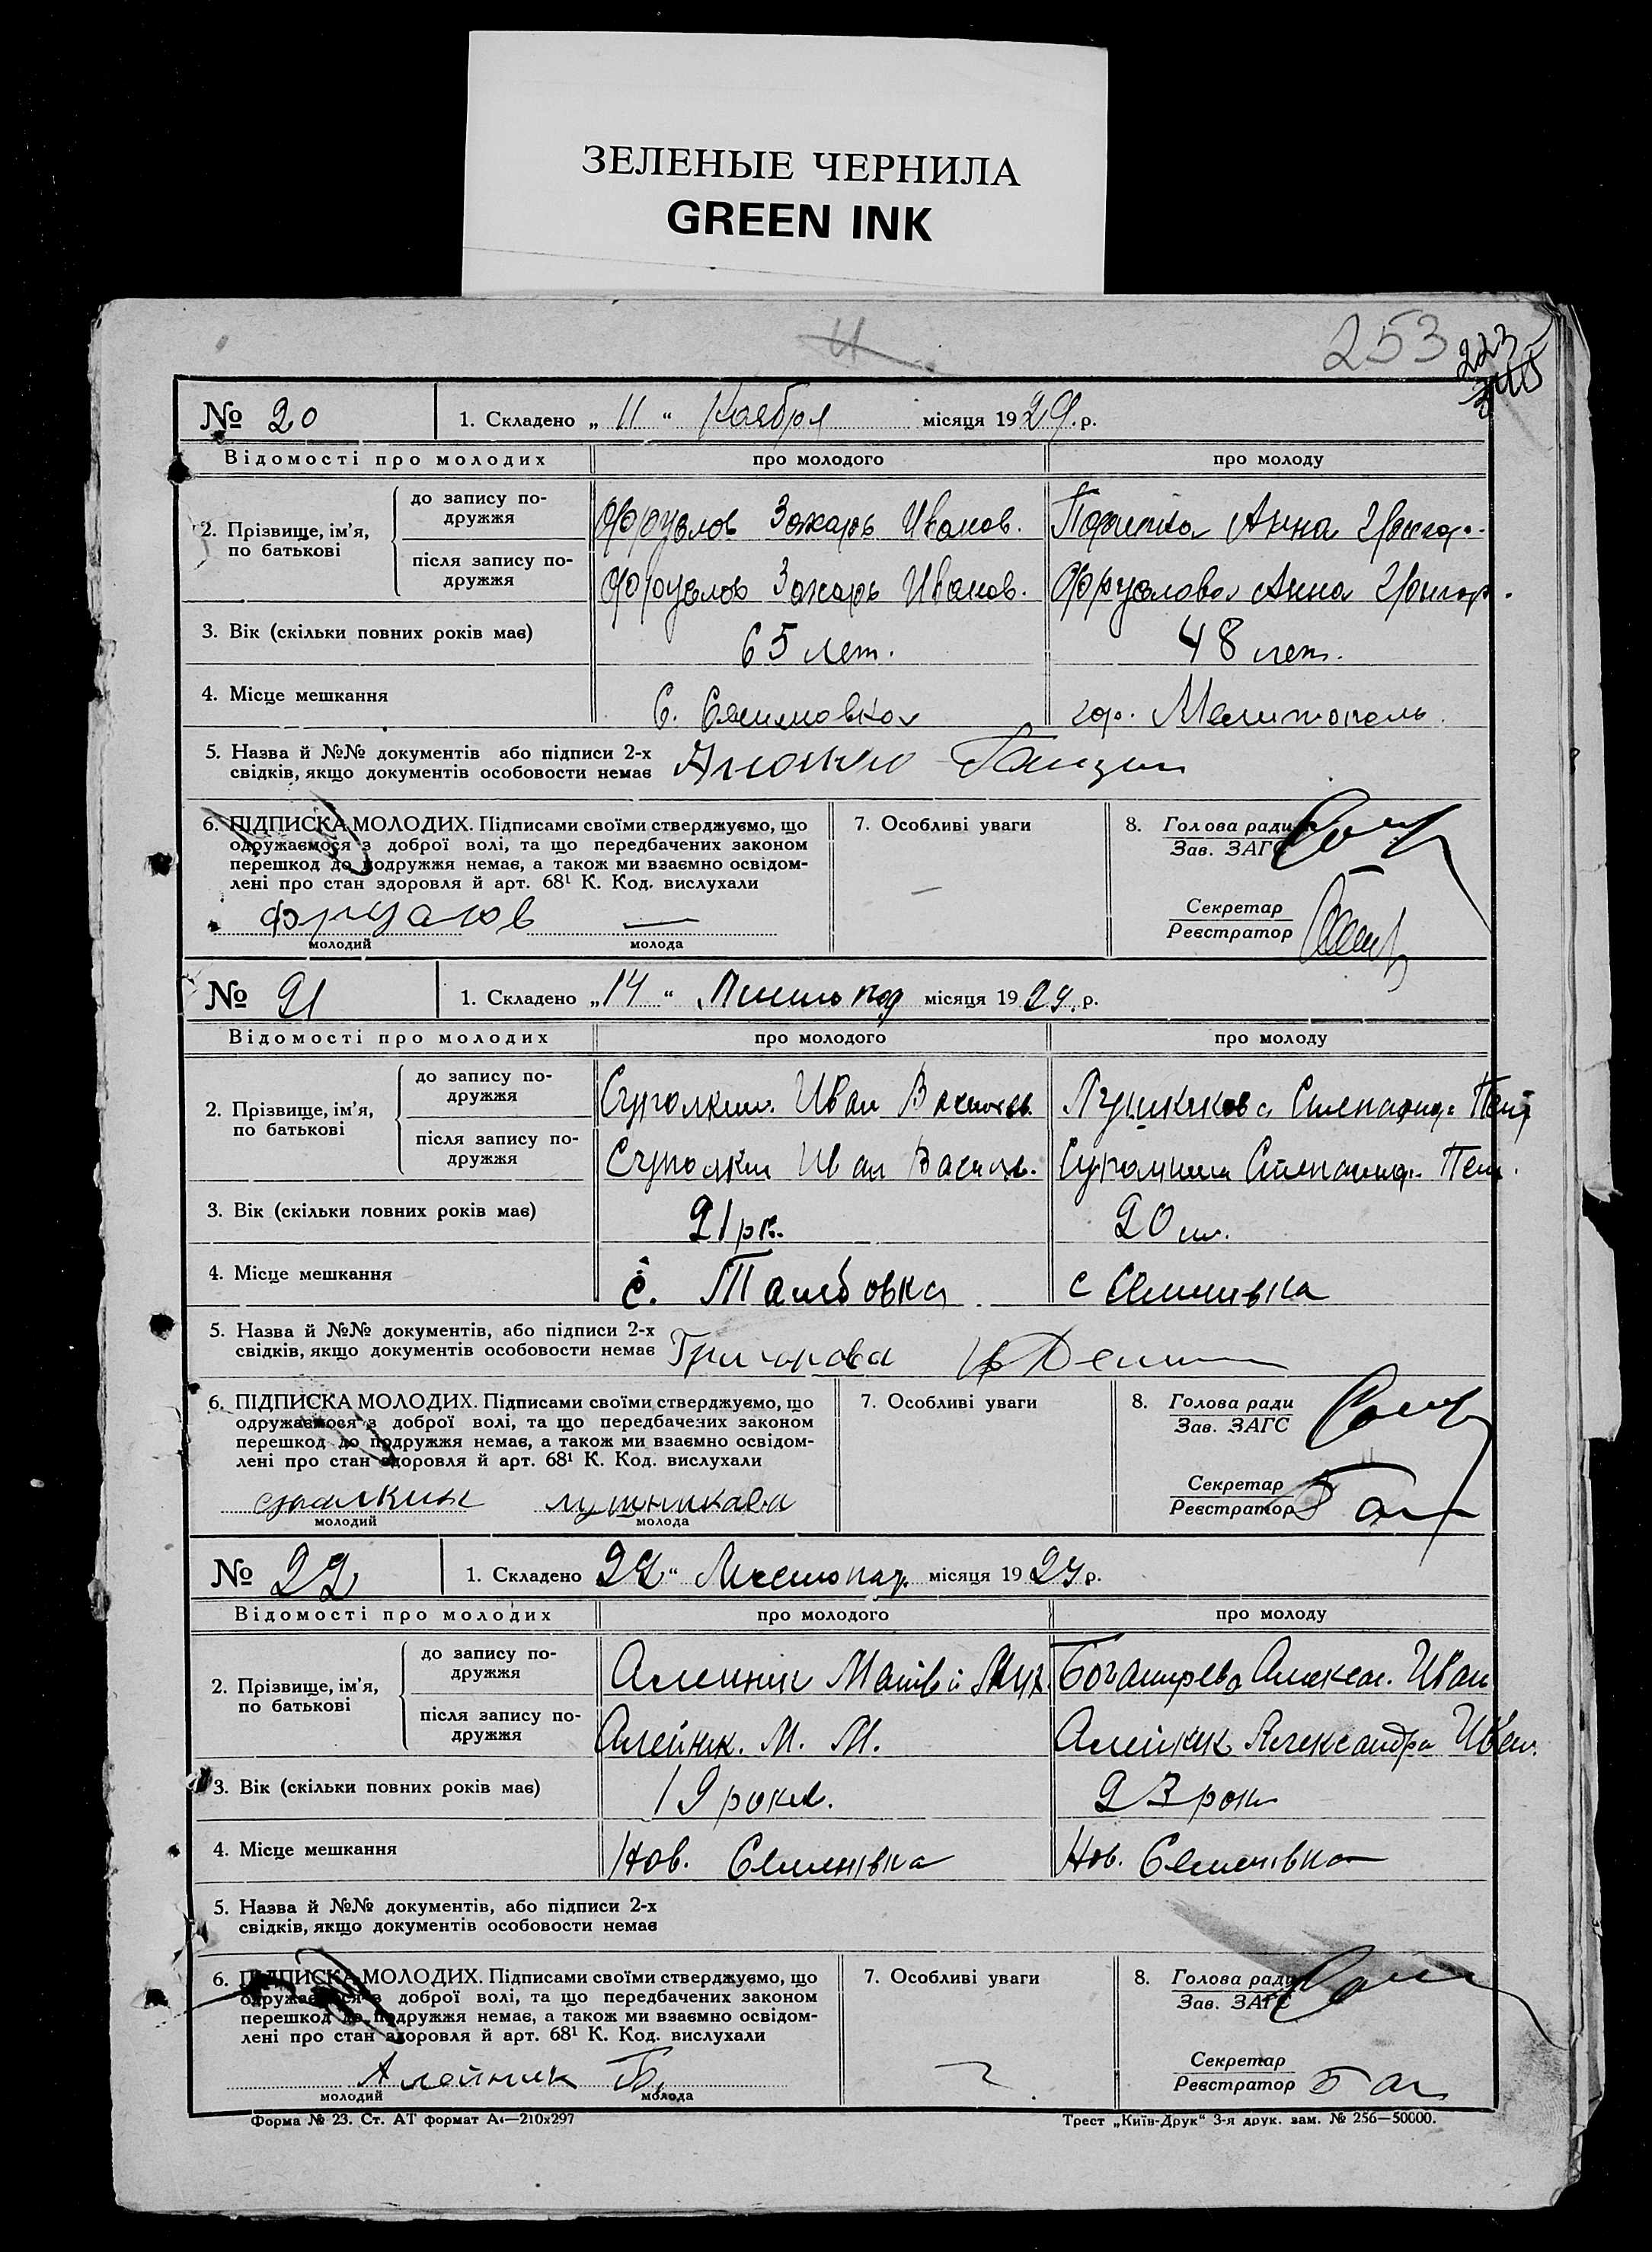 ЗЕЛЕНЫЕ ЧЕРНИЛА
GREEN INK
253
223
№ 20 1. Складено „ 11 “ Ноября місяця 1929. р.
Відомості про молодих про молодого про молоду
2. Прізвище, ім’я, по батькові
до запису подружжя Фрузлов Захарь Иванов. Анна Григор.
після запису подружжя Фрузлов Захарь Иванов. Фрузлова Анна Григор.
3. Вік (скільки повних років має) 65 лет. 48 лет.
4. Місце мешкання С. гор. Мелитополь.
5. Назва й №№ документів або підписи 2-х
свідків, якщо документів особовости немає
6. ПІДПИСКА МОЛОДИХ. Підписами своїми стверджуємо, що
одружаємося з доброї волі, та що передбачених законом
перешкод до подружжя немає, а також ми взаємно освідом-
лені про стан здоровля й арт. 68¹ К. Код. вислухали
7. Особливі уваги
—
8. Голова ради
Зав. ЗАГС
Секретар
Реєстратор
—
молодий молода
№ 21 1. Складено „14“ Листопад місяця 1929. р.
Відомості про молодих про молодого про молоду
2. Прізвище, ім’я, по батькові
до запису подружжя Иван
після запису подружжя Иван Василь.
3. Вік (скільки повних років має) 21 рк. 20
4. Місце мешкання с. Тамбовка с Семенівка
5. Назва й №№ документів, або підписи 2-х
свідків, якщо документів особовости немає Григорова
6. ПІДПИСКА МОЛОДИХ. Підписами своїми стверджуємо, що
одружаємося з доброї волі, та що передбачених законом
перешкод до подружжя немає, а також ми взаємно освідом-
лені про стан здоровля й арт. 68¹ К. Код. вислухали
7. Особливі уваги
8. Голова ради
Зав. ЗАГС
Секретар
Реєстратор
лушникава
молодий молода
№ 22 1. Складено 22“ Листопад. місяця 1929 р.
Відомості про молодих про молодого про молоду
2. Прізвище, ім’я, по батькові
до запису подружжя Алейник Матвій Богатирева Александ. Иван
після запису подружжя Алейник. М. М. Алейник Александра Иван.
3. Вік (скільки повних років має) 19 років. 23 роки
4. Місце мешкання Нов. Семенівка Нов. Семенівка
5. Назва й №№ документів, або підписи 2-х
свідків, якщо документів особовости немає
6. ПІДПИСКА МОЛОДИХ. Підписами своїми стверджуємо, що
одружаємося з доброї волі, та що передбачених законом
перешкод до подружжя немає, а також ми взаємно освідом-
лені про стан здоровля й арт. 68¹ К. Код. вислухали
7. Особливі уваги
8. Голова ради
Зав. ЗАГС
Секретар
Реєстратор
Алейник Б.
молодий молода
Форма № 23. Ст. АТ формат А4—210х297 Трест „Київ-Друк“ 3-я друк. зам. № 256—50000.